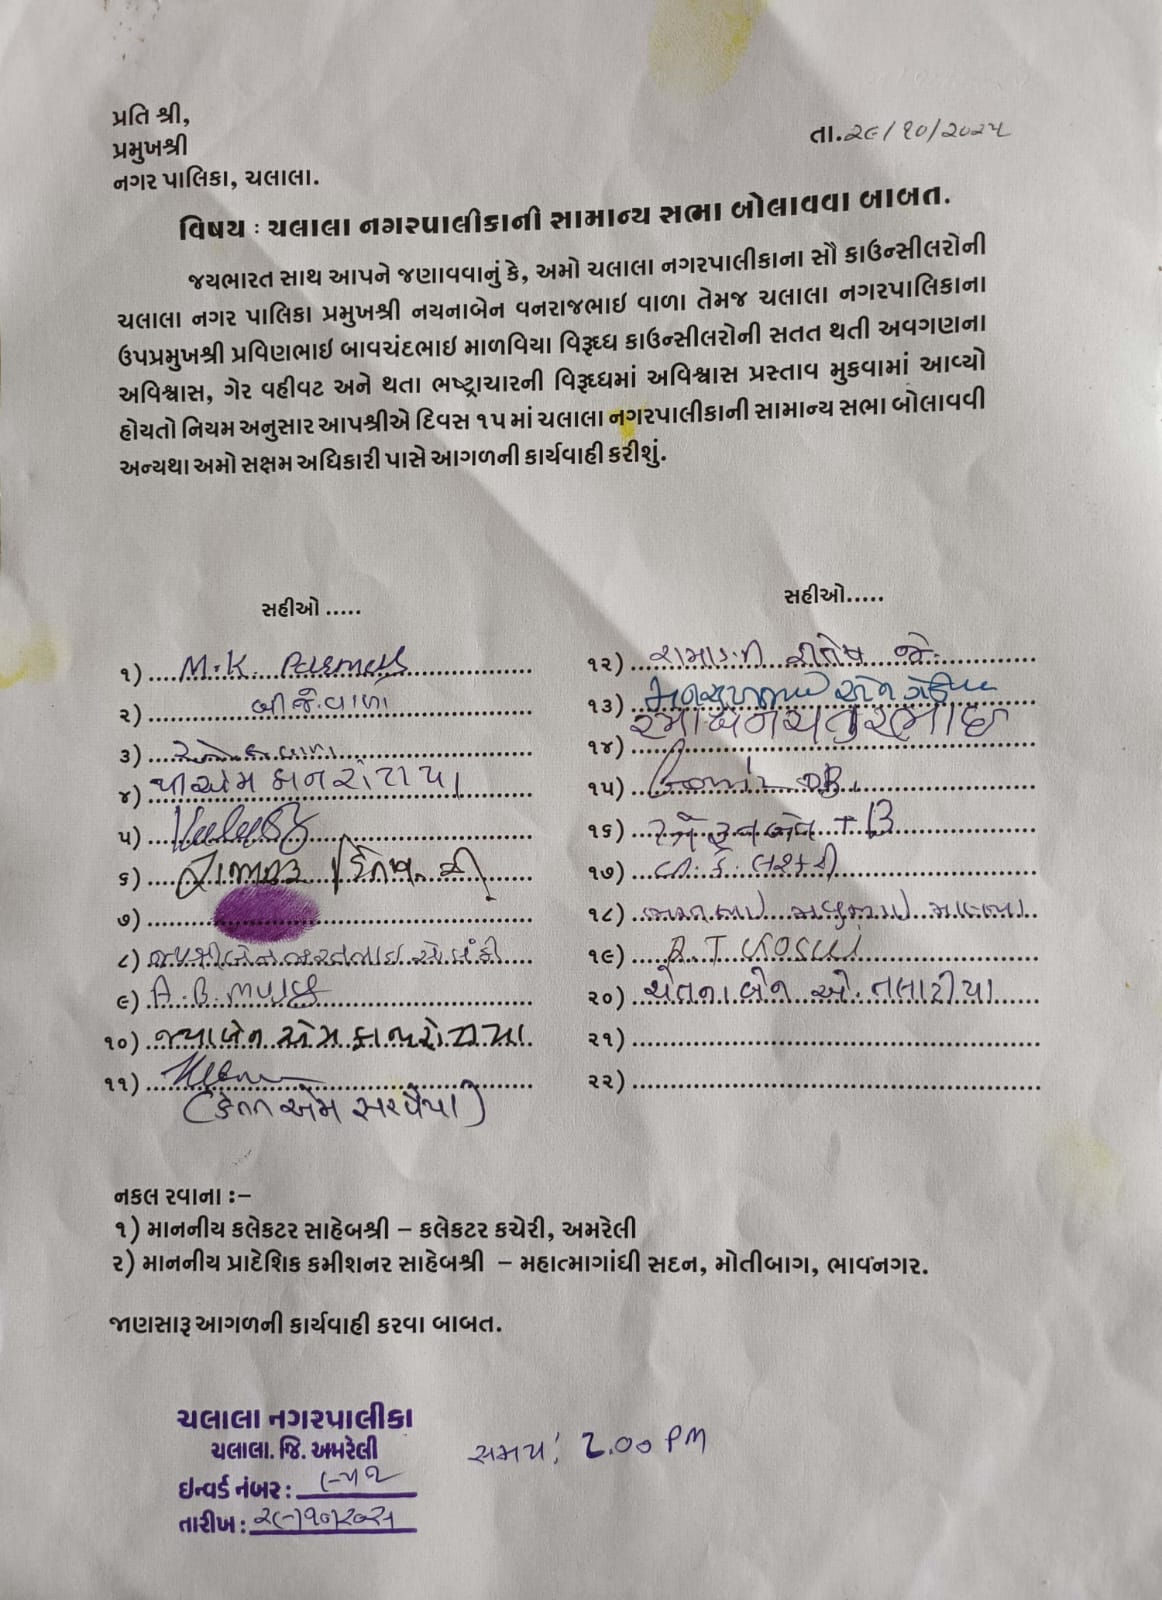 પ્રતિ શ્રી,
પ્રમુખશ્રી
નગર પાલિકા, ચલાલા.
તા.૨૯/૧૦/૨૦૨૫
વિષય : ચલાલા નગરપાલીકાની સામાન્ય સભા બોલાવવા બાબત.
જયભારત સાથ આપને જણાવવાનું કે, અમો ચલાલા નગરપાલીકાના સૌ કાઉન્સીલરોની
ચલાલા નગર પાલિકા પ્રમુખશ્રી નયનાબેન વનરાજભાઇ વાળા તેમજ ચલાલા નગરપાલિકાના
ઉપપ્રમુખશ્રી પ્રવિણભાઇ બાવચંદભાઇ માળવિયા વિરૂધ્ધ કાઉન્સીલરોની સતત થતી અવગણના
અવિશ્વાસ, ગેર વહીવટ અને થતા ભષ્ટ્રાચારની વિરૂધ્ધમાં અવિશ્વાસ પ્રસ્તાવ મુકવામાં આવ્યો
હોયતો નિયમ અનુસાર આપશ્રીએ દિવસ ૧૫ માં ચલાલા નગરપાલીકાની સામાન્ય સભા બોલાવવી
અન્યથા અમો સક્ષમ અધિકારી પાસે આગળની કાર્યવાહી કરીશું.
સહીઓ .....
૧) M.K. Parmar
૨) બી.જે.વાળા
૩)
૪) પી એમ કાનરોટીયા
૫)
૬)
૭)
૮) જયશ્રીબેન ભરતભાઇ સોલંકી
૯) A.B.
૧૦) જયાબેન એમ કાનરોટીયા
૧૧)
(કેતન એમ સરવૈયા)
સહીઓ.....
૧૨) રીતેષ જે.
૧૩) મનસુખભાઇ એમ
૧૪) રમાબેન ચતુરભાઇ
૧૫)
૧૬) B
૧૭) વી. કે. લશ્કરી
૧૮)
૧૯) A.T
૨૦) ચેતનાબેન ઓ. તલાટીયા
૨૧)
૨૨)
નકલ રવાના :–
૧) માનનીય કલેકટર સાહેબશ્રી – કલેકટર કચેરી, અમરેલી
૨) માનનીય પ્રાદેશિક કમીશનર સાહેબશ્રી – મહાત્માગાંધી સદન, મોતીબાગ, ભાવનગર.
જાણસારૂ આગળની કાર્યવાહી કરવા બાબત.
ચલાલા નગરપાલીકા
ચલાલા. જિ. અમરેલી
ઇન્વર્ડ નંબર :
તારીખ : ૨૯/૧૦/૨૦૨૫
સમય: 2.00 PM